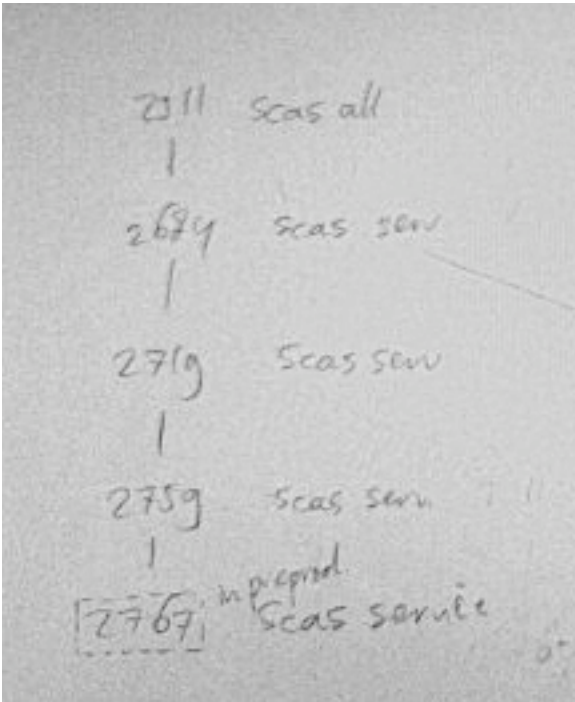 2911 scas all
2684 scas serv
2719 scas serv
2759 scas serv.
in preprod.
2767 scas service